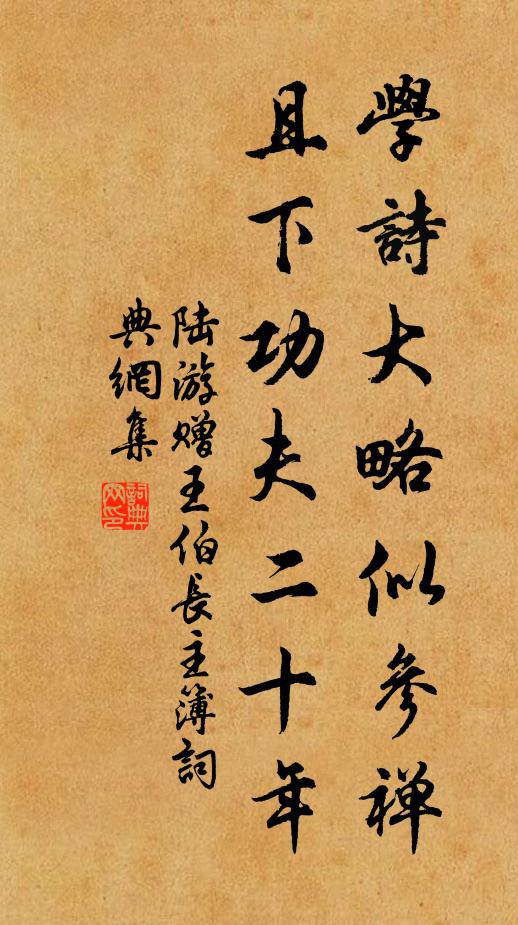 學詩大略似參禪
且下功夫二十年
陸游贈王伯長主簿詞
典網集
詞典網印